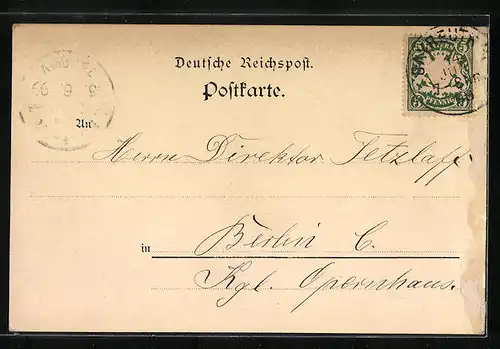 Deutsche Reichspost.
Postkarte.
An
Herrn Direktor Tetzlaff
in Berlin C.
Kgl. Opernhaus.
PFENNIG